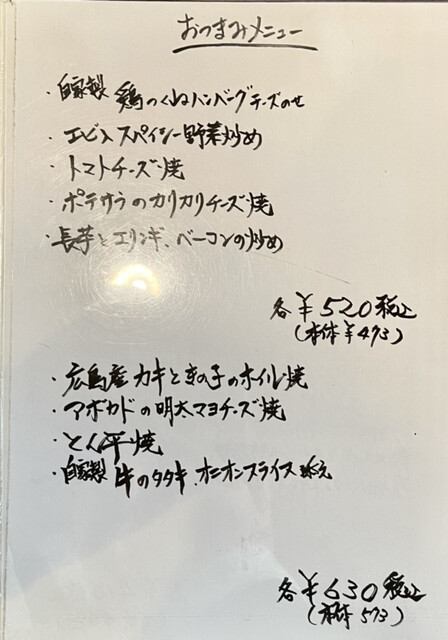 おつまみメニュー
・自家製 鶏つくねハンバーグチーズのせ
・エビ入スパイシー野菜炒め
・トマトチーズ焼
・ポテサラのカリカリチーズ焼
・長芋とエリンギ、ベーコンの炒め
各¥520税込
(本体¥473)
・広島産カキときの子のホイル焼
・アボカドの明太マヨチーズ焼
・とん平焼
・自家製 牛のタタキ、オニオンスライス添え
各¥630税込
(本体573)